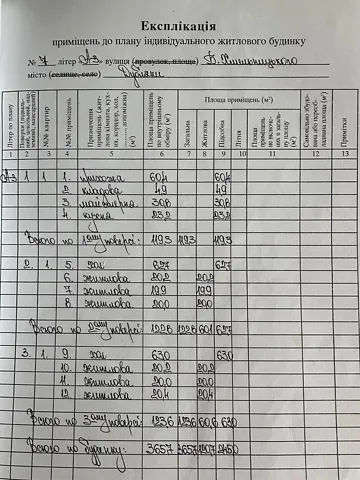 Експлікація
приміщень до плану індивідуального житлового будинку
№ 7 літер "А3" вулиця (провулок, площа) Б. Хмельницького
місто (селище, село)
Літер по плану | Поверхи | № квартир | № приміщень | Призначення приміщень | Площа приміщень по внутрішньому обміру (м²) | Площа приміщень (м²) | Загальна | Житлова | Підсобна | Літня | Площа приміщень | Самовільно | Примітки
1 2 3 4 5 6 7 8 9 10 11 12 13
А3 1 1 1. 60,4 60,4
2. кладова 4,9 4,9
3. 30,8 30,8
4. кухня 23,2 23,2
Всього по 1му поверсі: 119,3 119,3 119,3
2. 1. 5. хол 62,7 62,7
6. житлова 20,2 20,2
7. житлова 19,9 19,9
8. житлова 20,0 20,0
Всього по 2му поверсі: 122,8 122,8 60,1 62,7
3. 1. 9. хол 63,0 63,0
10. житлова 20,2 20,2
11. житлова 20,0 20,0
12. житлова 20,4 20,4
Всього по 3му поверсі: 123,6 123,6 60,6 63,0
Всього по будинку: 365,7 365,7 120,7 245,0